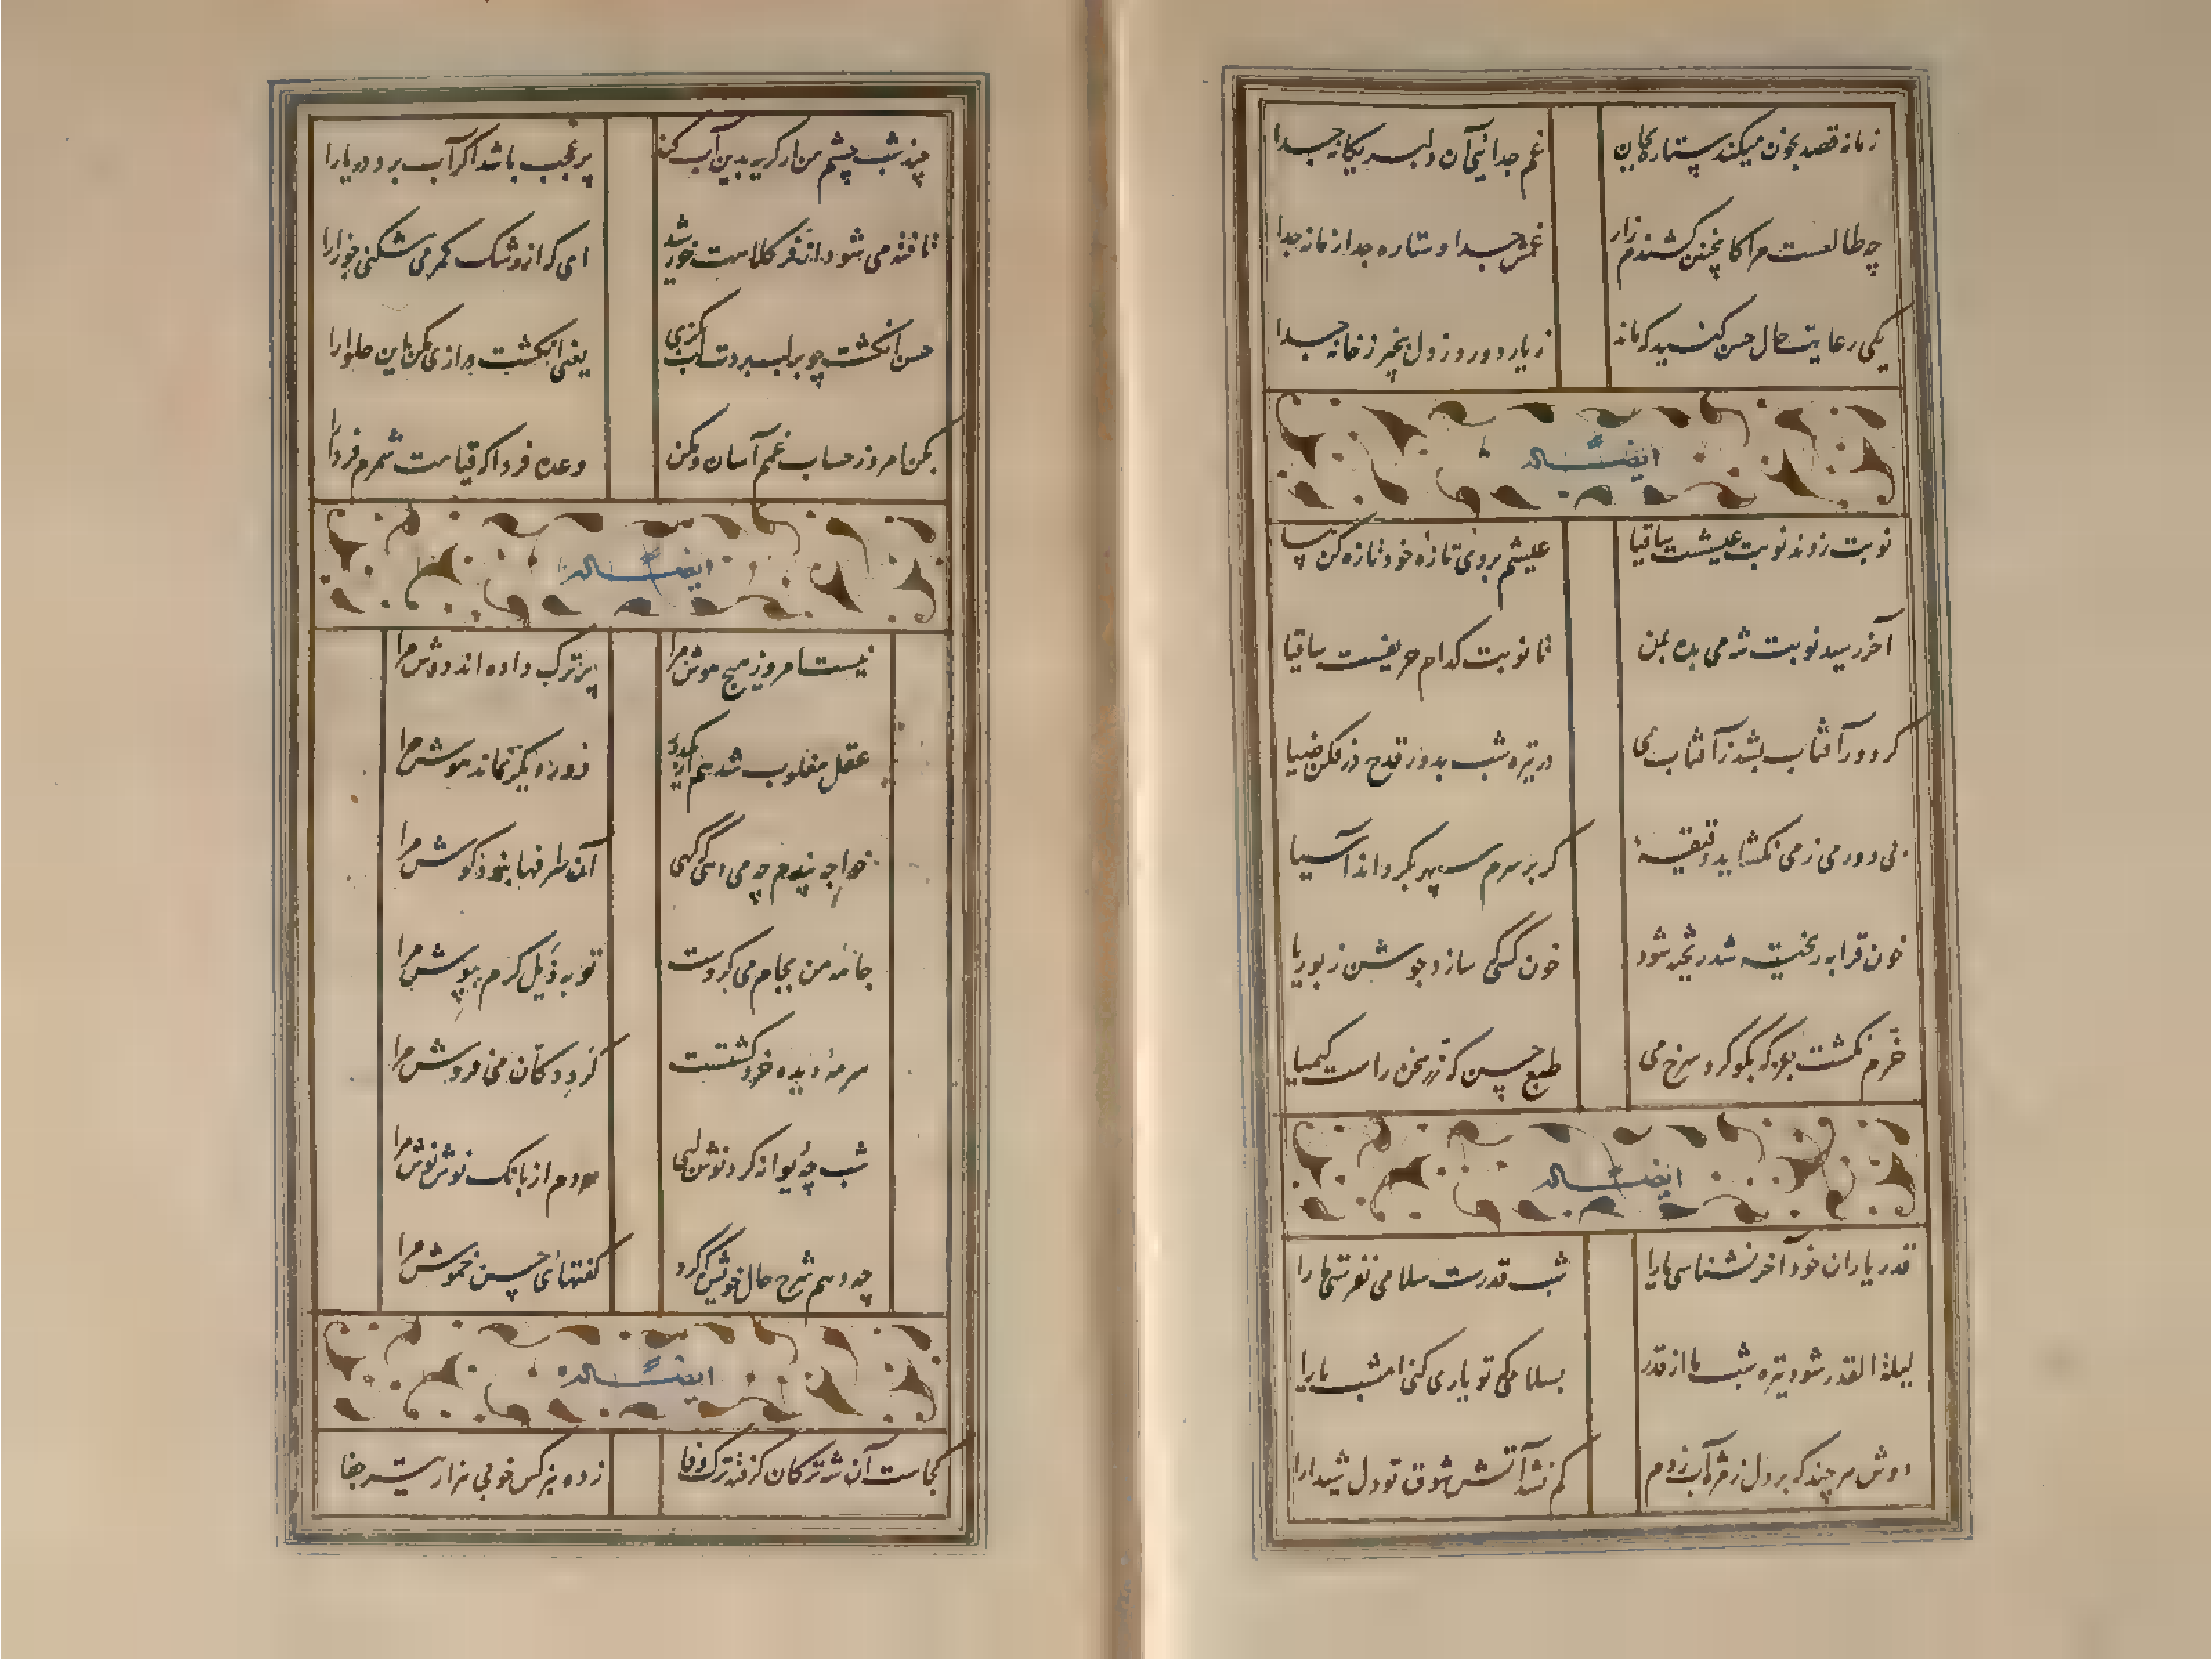 زمانه قصد بخون میکند ستاره بجان
غم جدائی آن دلبر یکانه جدا
چه طالعست مرا کاینچنین کشندم زار
غمش جدا و ستاره جدا زمانه جدا
یکی رعایت حال حسن کنید که ماند
ز یار دور و ز دل بیخبر ز خانه جدا
ایضاً له
نوبت زدند نوبت عیشست ساقیا
عیشم بروی تازه خود تازه کن بیا
آخر رسید نوبت شه می بده بمن
تا نوبت کدام حریفست ساقیا
کر دور آفتاب بشد ز آفتاب می
در تیره شب بدور قدح در فکن ضیا
بی دور می ز می نکشاید دقیقه
کر بر سرم سپهر بکرداند آسیا
خون قرابه ریخته شد ریخته شود
خون کسی سازد جوشن ز بوریا
خرم نکشت بو که بکوکرد سرخ می
طبع حسن که زر سخن راست کیمیا
ایضاً له
قدر یاران خود آخر نشناسی یارا
شب قدرست سلامی نفرستی ما را
لیلة القدر شود تیره شب ما از قدر
بسلامی که تو یاری کنی امشب یارا
دوش هر چند که بر دل ز مژه آب زدم
کم نشد آتش شوق تو دل شیدا را
چند شب چشم من ار کریه بدین آب کند
پر عجب باشد اکر آب برد دریا را
تافته می شود از فر کلاهت خورشید
ای که از وشک کمر می شکنی جوزا را
حسن انکشت چو بر لب بردت لب نکزی
یعنی انکشت درازی مکن این حلوا را
بکن امروز حساب غم آسان و مکن
وعده فردا که قیامت شمرم فردا را
ایضاً له
نیست امروز هیچ هوش مرا
پرترک داده اند دوش مرا
عقل مغلوب شد هم آخر دید
دور دیکر نماند هوش مرا
خواجه پندم چه می دهی کهی
آن طرفها نبود کوش مرا
جامه من بجام می کروست
تو به ذیل کرم بپوش مرا
سرمه دیده خود کشتست
کرد دکان می فروش مرا
شب چه دیوانه کرد نوشن لبها
هر دم از بانک نوش نوش مرا
چه دهم شرح حال خویش که کرد
کفتهای حسن خموش مرا
ایضاً له
کجاست آن شه ترکان که کرفت ترک وفا
زده بهر کس خوبی هزار تیر جفا